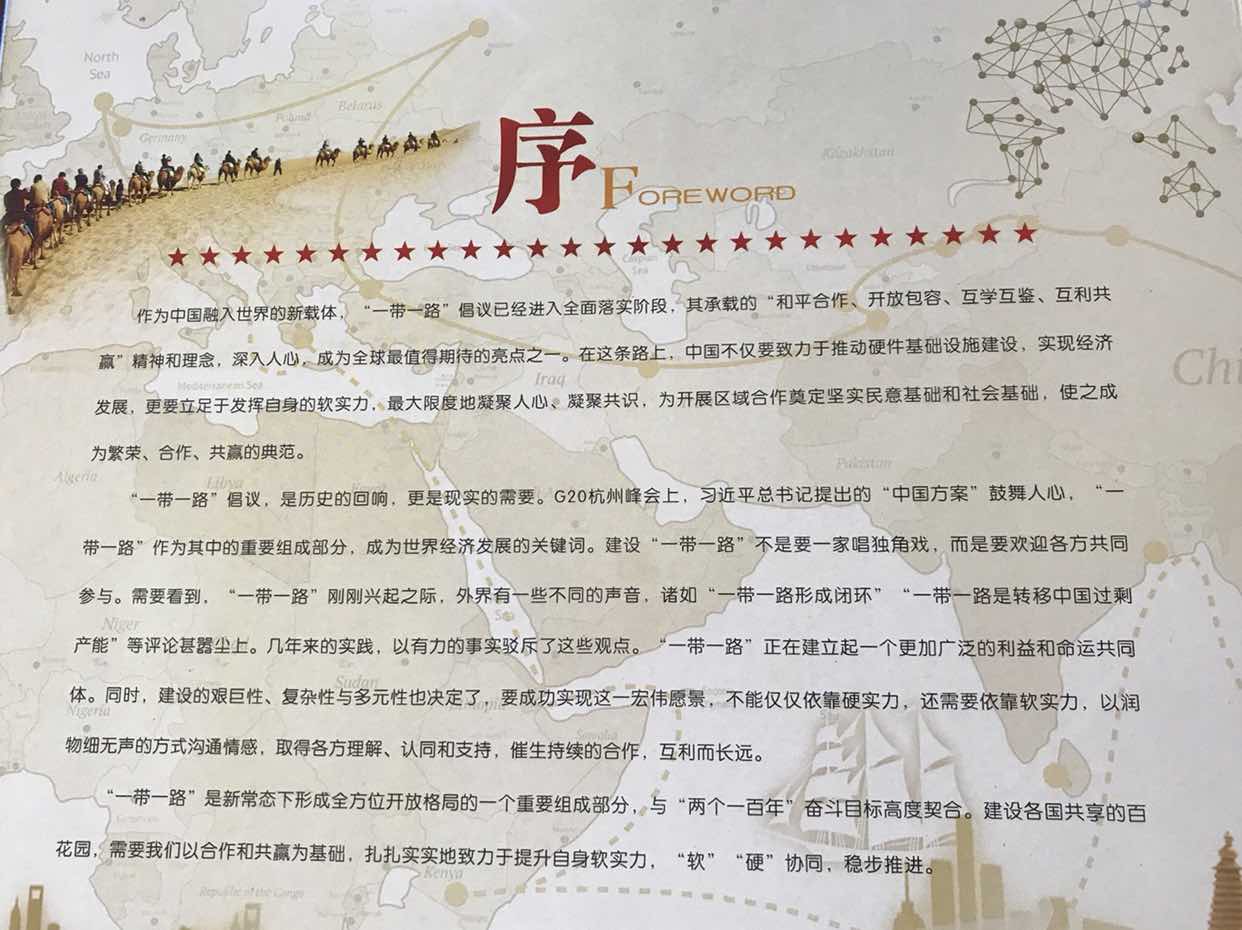 序 FOREWORD
作为中国融入世界的新载体，“一带一路”倡议已经进入全面落实阶段，其承载的“和平合作、开放包容、互学互鉴、互利共
赢”精神和理念，深入人心，成为全球最值得期待的亮点之一。在这条路上，中国不仅要致力于推动硬件基础设施建设，实现经济
发展，更要立足于发挥自身的软实力，最大限度地凝聚人心、凝聚共识，为开展区域合作奠定坚实民意基础和社会基础，使之成
为繁荣、合作、共赢的典范。
“一带一路”倡议，是历史的回响，更是现实的需要。G20杭州峰会上，习近平总书记提出的“中国方案”鼓舞人心，“一
带一路”作为其中的重要组成部分，成为世界经济发展的关键词。建设“一带一路”不是要一家唱独角戏，而是要欢迎各方共同
参与。需要看到，“一带一路”刚刚兴起之际，外界有一些不同的声音，诸如“一带一路形成闭环”“一带一路是转移中国过剩
产能”等评论甚嚣尘上。几年来的实践，以有力的事实驳斥了这些观点。“一带一路”正在建立起一个更加广泛的利益和命运共同
体。同时，建设的艰巨性、复杂性与多元性也决定了，要成功实现这一宏伟愿景，不能仅仅依靠硬实力，还需要依靠软实力，以润
物细无声的方式沟通情感，取得各方理解、认同和支持，催生持续的合作，互利而长远。
“一带一路”是新常态下形成全方位开放格局的一个重要组成部分，与“两个一百年”奋斗目标高度契合。建设各国共享的百
花园，需要我们以合作和共赢为基础，扎扎实实地致力于提升自身软实力，“软”“硬”协同，稳步推进。
North
Sea
Belarus
Poland
Germany
Kazakhstan
Caspian
Sea
Mediterranean Sea
Iraq
Chi
Algeria
Libya
Pakistan
Niger
Sudan
Nigeria
Somalia
Kenya
Republic of the Congo